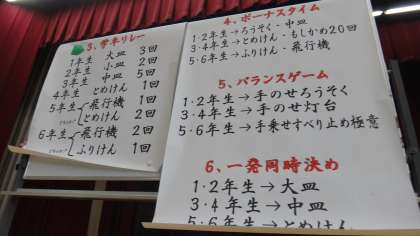 3、学年リレー
1年生 大皿 3回
2年生 小皿 2回
3年生 中皿 5回
4年生 とめけん 1回
5年生 飛行機 2回
とめけん 2回
6年生 飛行機 2回
ふりけん 1回
4、ボーナスタイム
1・2年生→ろうそく・中皿
3・4年生→とめけん・もしかめ20回
5・6年生→ふりけん・飛行機
5、バランスゲーム
1・2年生→手のせろうそく
3・4年生→手のせ灯台
5・6年生→手乗せすべり止め極意
6、一発同時決め
1・2年生→大皿
3・4年生→中皿
5・6年生→とめけん